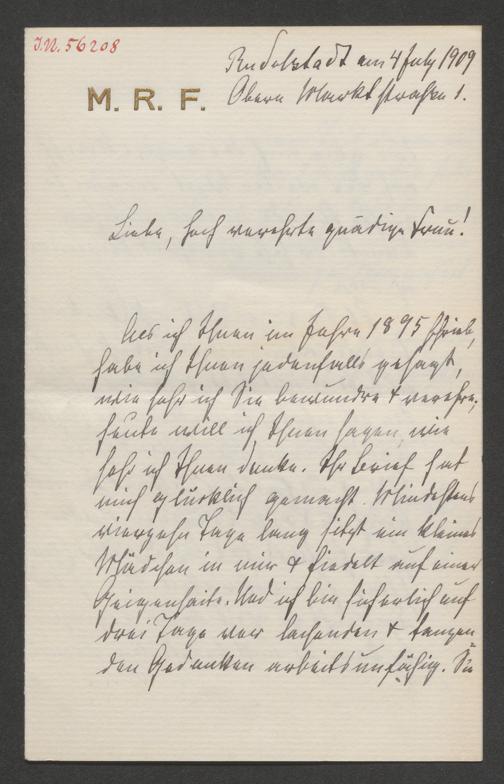 J.N. 56208
Rudolstadt am 4 July 1909
M. R. F.
Obere Marktstraße 1.
Liebe, hoch verehrte gnädige Frau!
Als ich Ihnen im Jahre 1895 schrieb,
habe ich Ihnen jedenfalls gesagt,
wie sehr ich Sie bewundre & verehre;
heute will ich Ihnen sagen, wie
sehr ich Ihnen danke. Ihr Brief hat
mich glücklich gemacht. Mindestens
vierzehn Tage lang sitzt ein kleines
Mädchen in mir & fiedelt auf einer
Geigensaite. Und ich bin sicherlich auf
drei Tage vor lachenden & tanzen
den Gedanken arbeitsunfähig. Sie